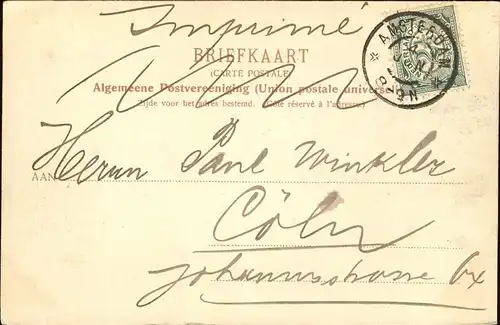 Imprimé
BRIEFKAART
(CARTE POSTALE)
Algemeene Postvereeniging (Union postale universelle)
Zijde voor het adres bestemd. (Côté réservé à l'adresse)
AMSTERDAM
AAN Herrn Paul Winkler
Cöln
Johannisstrasse